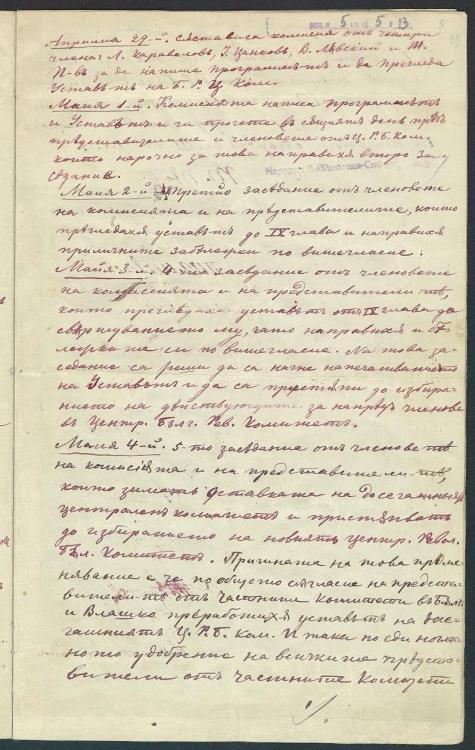 5 5 13
3
Априлия 29-й. съставися комисия отъ четири
члена: Л. Каравеловъ, І. Цанковъ, В. Лѣвский и
П-въ за да напише програмътъ и да прегледа
Уставътъ на Б. Р. Ц. Ком.
Маия 1-й. Комисията написа програмътъ
и Уставътъ и ги прочете въ същия день прѣдъ
прѣдставителите и членовете отъ Ц. Р. Б. Ком.
които нарочно за това направихѫ второ за-
сѣдание.
Маия 2-й третйо засѣдание отъ членовете
на комисията и на прѣдставителите, които
прѣгледахѫ уставътъ до IX глава и направихѫ
приличните забѣлѣжки по вишегласие.
Майя 3-й. 4-то засѣдание отъ членовете
на комисията и на представители-тѣ,
които прегледаха уставътъ отъ IX глава до
свършуванието му, като направихѫ и
лѣжки пѫ си по вишегласие. На това за-
седание са реши да са каже напечатванието
на Уставътъ и да са пристѫпи до избира-
нието на дѣйствующите за напрѣдъ членове
въ Центр. Бълг. Рев. Комитетъ.
Маия 4-й. 5-то засѣдание отъ членове-тѣ
на комисията и на представители-тѣ,
които зимать оставката на досегашния
централенъ комитетъ и пристѫпватъ
до избиранието на новиятъ центр. Револ.
Бъл. Комитетъ. Причината на това промѣ-
нявание е, че по общото съгласие на предста-
вители-тѣ отъ частните комитети въ Бълг.
и Влашко, преработихѫ уставътъ на досе-
гашниятъ Ц. Р. Б. Ком. И така по едногла-
но удобрение на всичките прѣдста-
вители отъ частните комитети